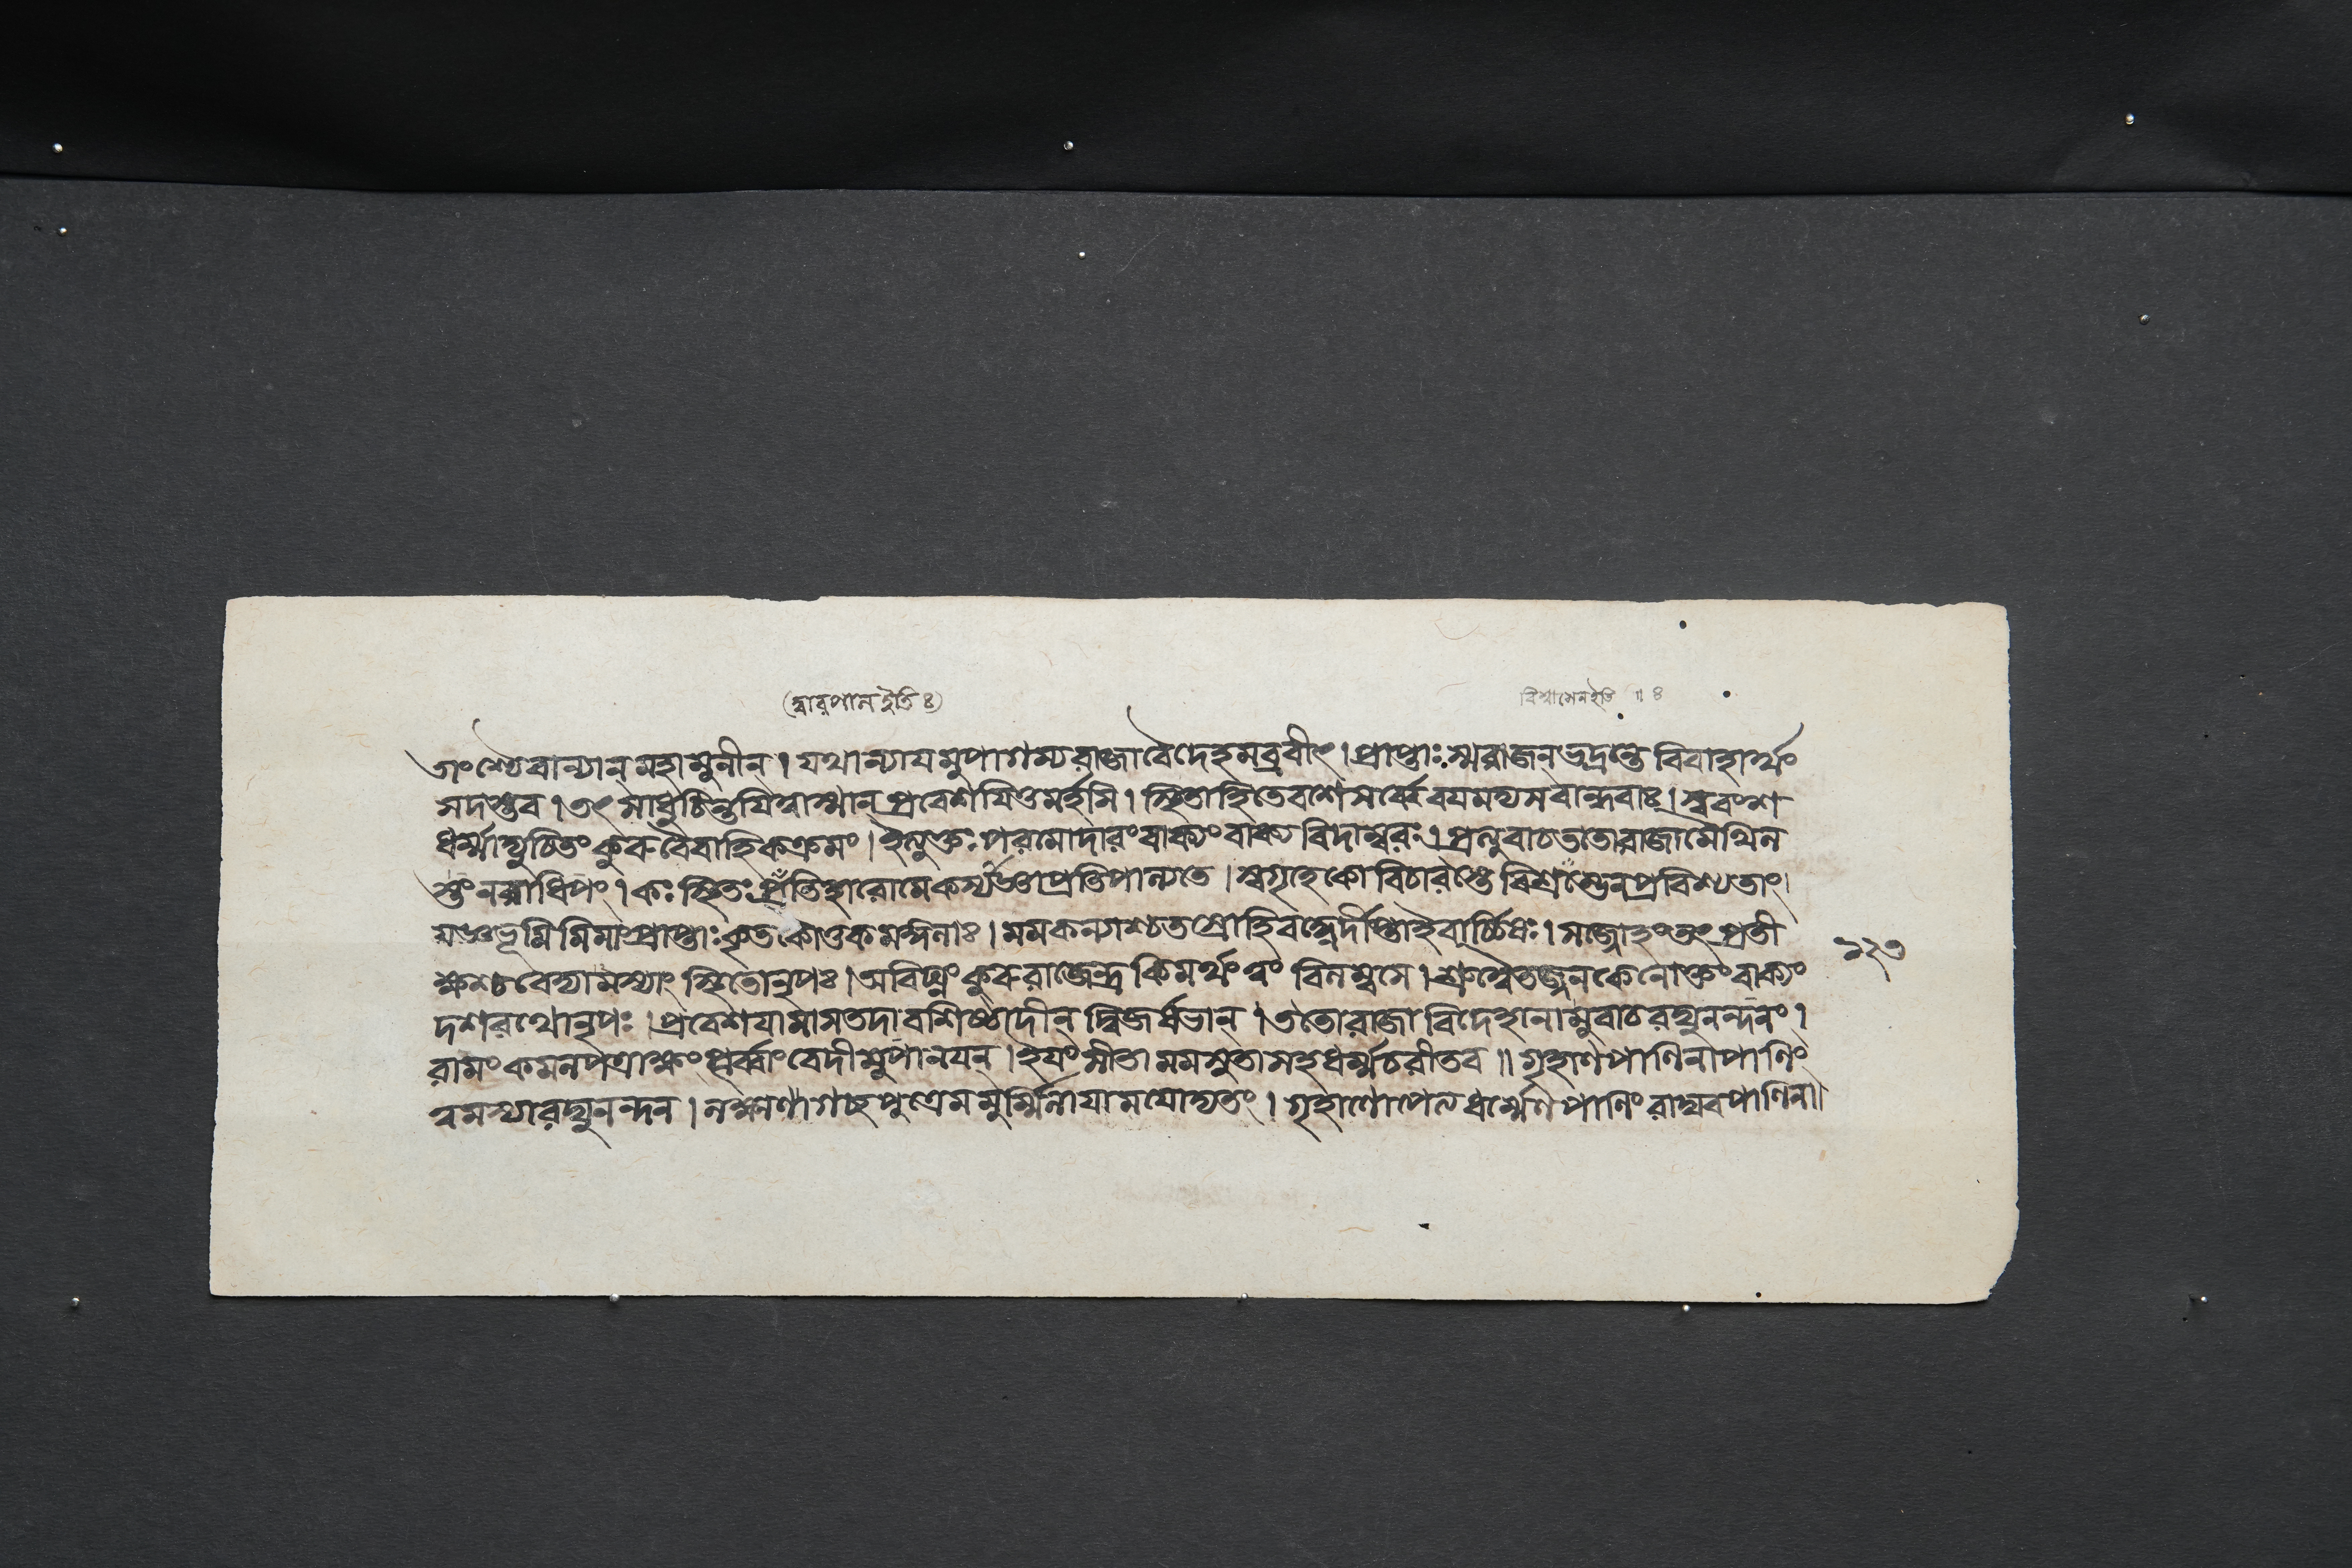 (দ্বারপাল ইতি ঃ)
বিশ্বাসেন ইতি ॥ ৪
তাংশ্চৈবান্যান্ মহামুনীন্ । যথান্যাযমুপাগম্য রাজা বৈদেহমব্রবীৎ । প্রাপ্তাঃ স্ম রাজন্ ভদ্রন্তে বিবাহার্থং
সদস্তব । তৎ সাধু চিন্তযিত্বাস্মান্ প্রবেশযিতুমর্হসি । স্থিতা হি তে বশে সর্ব্বে বযমদ্য সবান্ধবাঃ । স্ববংশ
ধর্ম্মাত্যুচিতং কুরু বৈবাহিকক্রমং । ইত্যুক্তঃ পরমোদারং বাক্যং বাক্যবিদাম্বরঃ । প্রত্যুবাচ ততো রাজা মৈথিল
স্তং নরাধিপং । কঃ স্থিতঃ প্রতিহারো মে কস্যাজ্ঞা প্রতিপাল্যতে । স্বগৃহে কো বিচারস্তে বিশ্রম্ভেন প্রবিশ্যতাং ।
যজ্ঞভূমিমিমাং প্রাপ্তাঃ কৃতকৌতুকমঙ্গলাঃ । মম কন্যাশ্চতস্রো হি বহ্নের্দীপ্তা ইবার্চ্চিষঃ । সজ্জোহং ত্বৎপ্রতী
১২৩
ক্ষশ্চ বেদ্যামস্যাং স্থিতো নৃপঃ । অবিঘ্নং কুরু রাজেন্দ্র কিমর্থং ত্বং বিলম্বসে । শ্রুত্বৈতজ্জনকেনোক্তং বাক্যং
দশরথো নৃপঃ । প্রবেশযামাস তদা বশিষ্ঠাদীন্ দ্বিজর্ষভান্ । ততো রাজা বিদেহানামুবাচ রঘুনন্দনং ।
রামং কমলপত্রাক্ষং পূর্ব্বাং বেদীমুপানযন্ । ইযং সীতা মম সুতা সহধর্ম্মচরী তব ॥ গৃহাণ পাণিনা পাণিং
ত্বমস্যা রঘুনন্দন । লক্ষ্মণাগচ্ছ পুত্রেমমুর্ম্মিলাযা মযোদ্যতং । গৃহাণোপেত্য ধর্ম্মেণ পাণিং রাঘব পাণিনা ॥